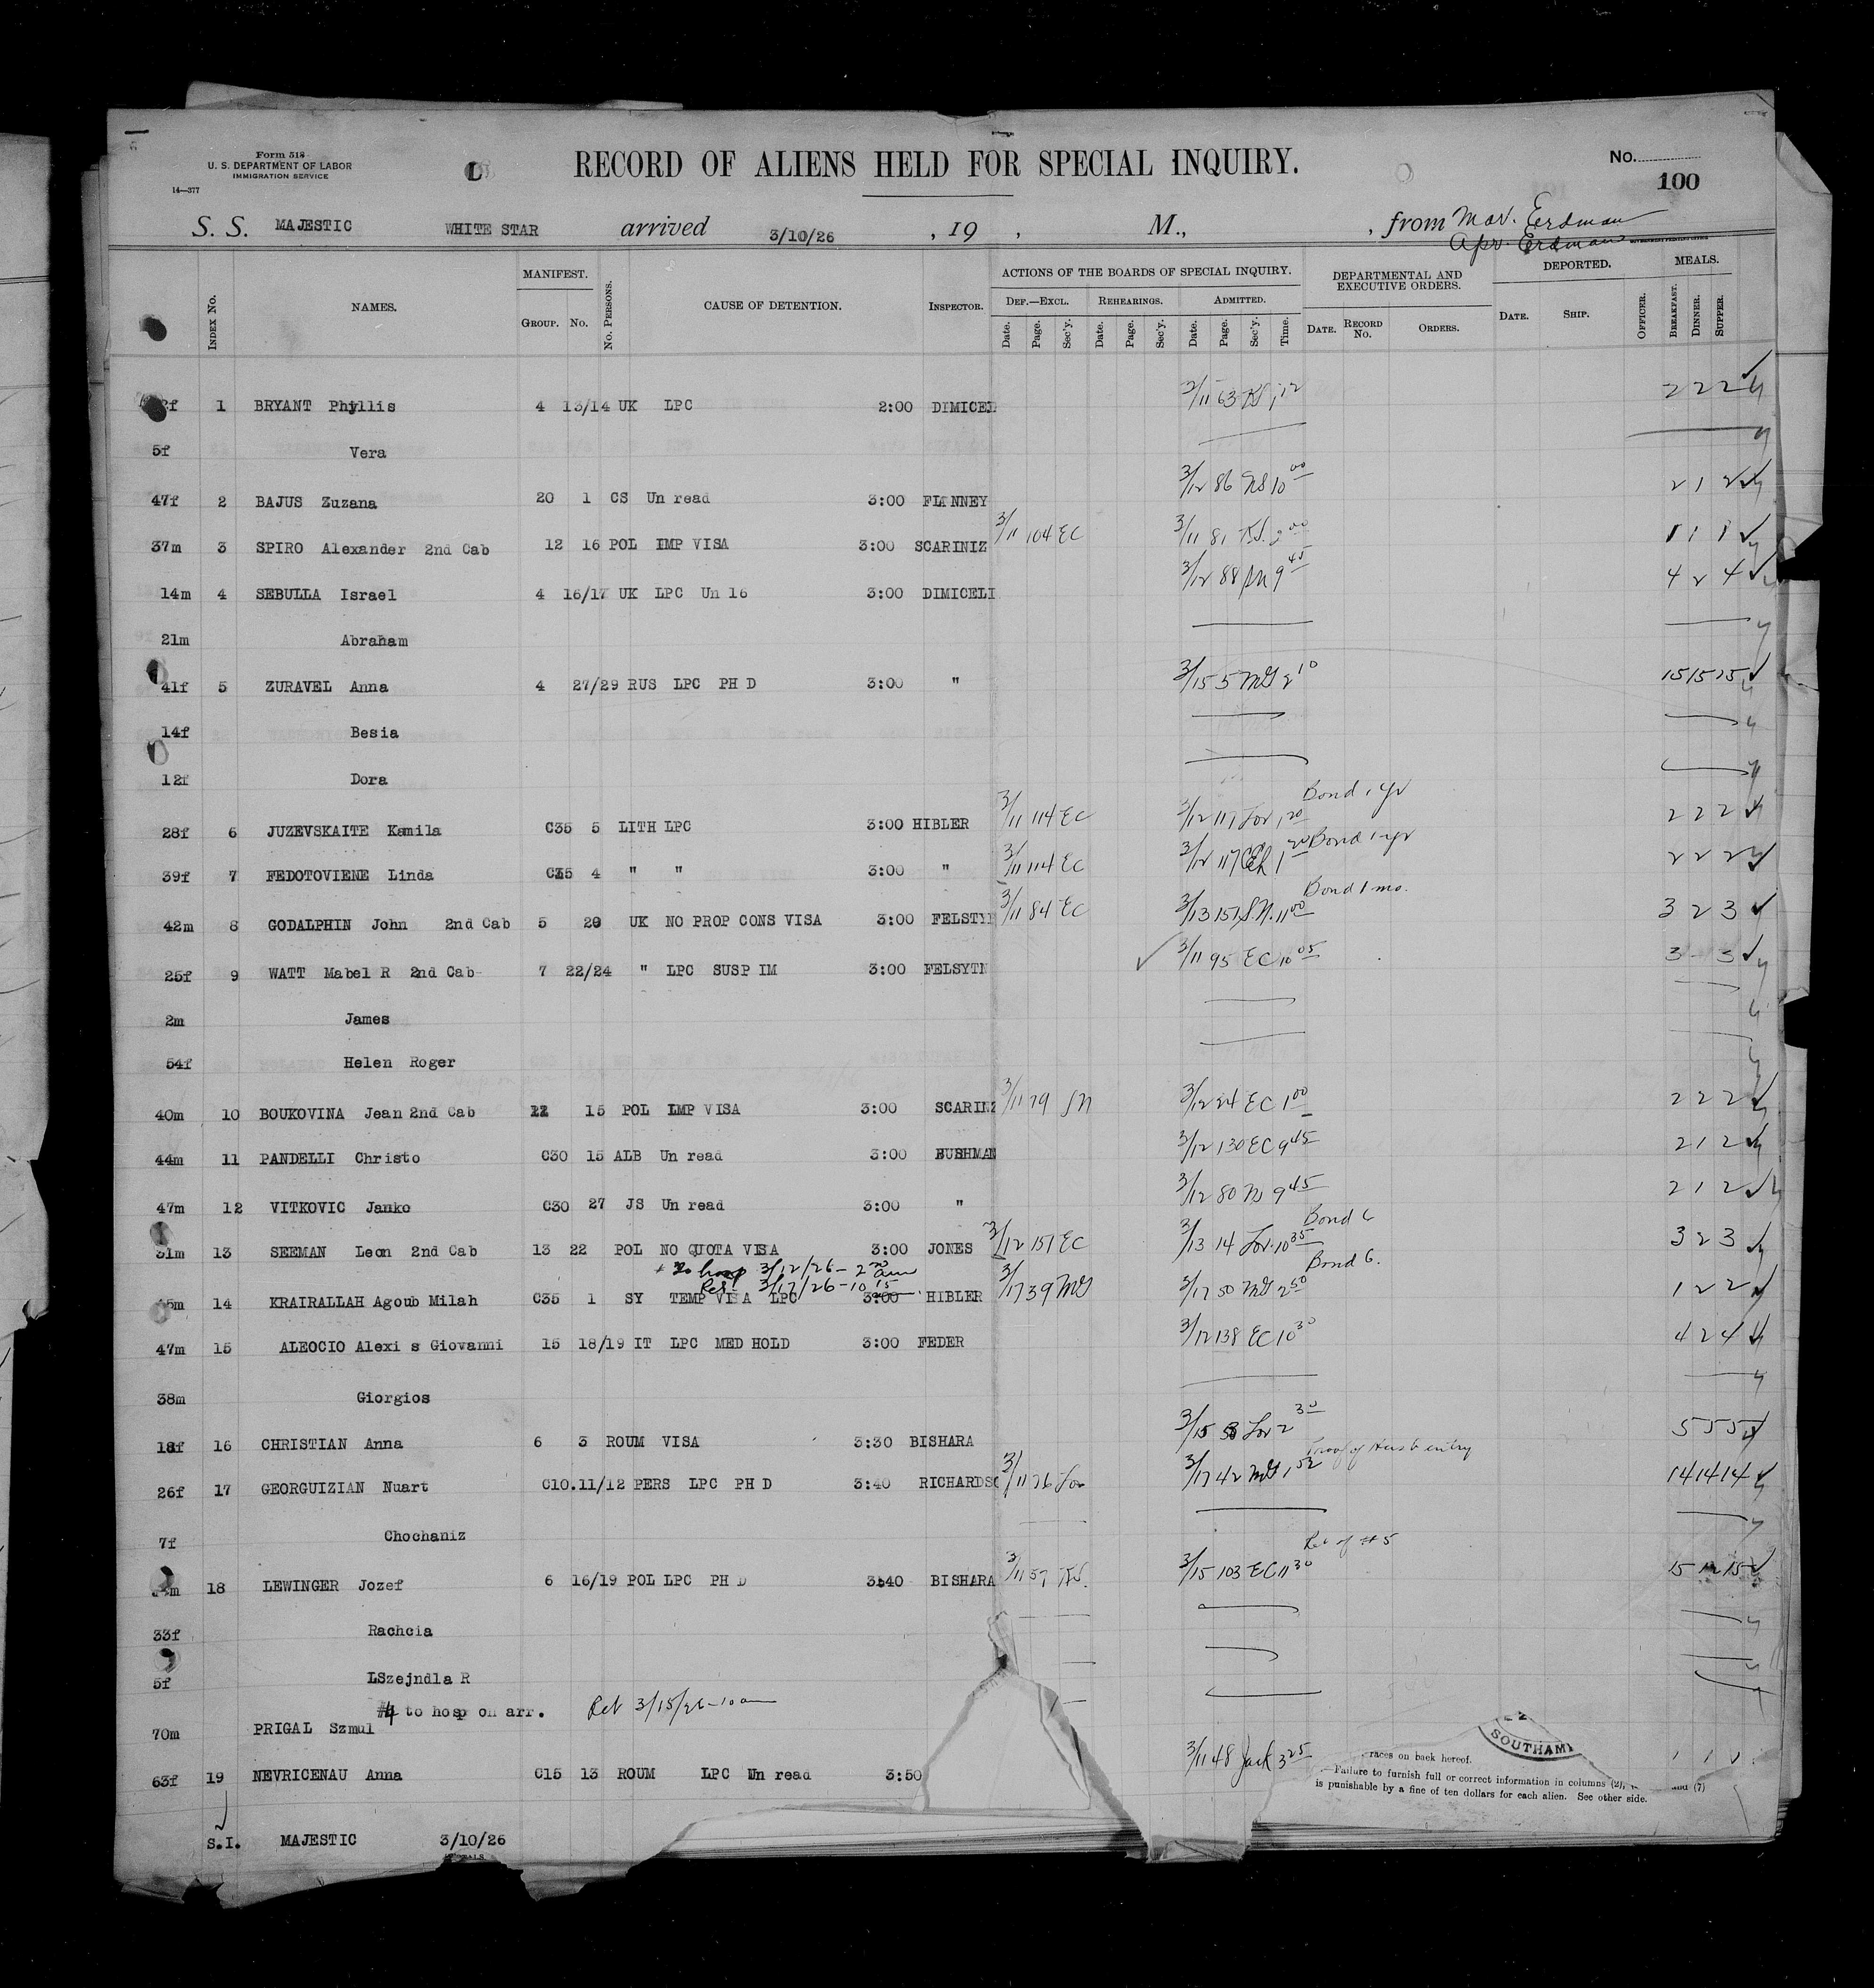 Form 518
U. S. DEPARTMENT OF LABOR
IMMIGRATION SERVICE
14—377
RECORD OF ALIENS HELD FOR SPECIAL INQUIRY.
No.
100
S. S. MAJESTIC WHITE STAR arrived 3/10/26 , 19 , M., , from Mar. Erdman
Apr. Erdman
Index No. NAMES. MANIFEST. Group. No. No. Persons. CAUSE OF DETENTION. Inspector. ACTIONS OF THE BOARDS OF SPECIAL INQUIRY. DEPARTMENTAL AND EXECUTIVE ORDERS. DEPORTED. MEALS.
Def.—Excl. Rehearings. Admitted.
Date. Page. Sec'y. Date. Page. Sec'y. Date. Page. Sec'y. Time. Date. Record No. Orders. Date. Ship. Officer. Breakfast. Dinner. Supper.
1 BRYANT Phyllis 4 13/14 UK LPC 2:00 DIMICEL 3/11 63 2 2 2
5f Vera
47f 2 BAJUS Zuzana 20 1 CS Un read 3:00 FLNNEY 3/12 86 10 00 2 1 2
37m 3 SPIRO Alexander 2nd Cab 12 16 POL IMP VISA 3:00 SCARINIZ 3/11 104 EC 3/11 81 1 1 1
14m 4 SEBULLA Israel 4 16/17 UK LPC Un 16 3:00 DIMICELI 3/12 88 SN 9 45 4 2 4
21m Abraham
41f 5 ZURAVEL Anna 4 27/29 RUS LPC PH D 3:00 " 3/15 5 2 10 15 15 15
14f Besia
12f Dora
28f 6 JUZEVSKAITE Kamila C35 5 LITH LPC 3:00 HIBLER 3/11 114 EC 3/12 117 Lor 1 20 Bond 1 yr 2 2 2
39f 7 FEDOTOVIENE Linda C35 4 " " 3:00 " 3/11 114 EC 3/12 117 1 20 Bond 1 yr 2 2 2
42m 8 GODALPHIN John 2nd Cab 5 29 UK NO PROP CONS VISA 3:00 FELSTY 3/11 84 EC 3/13 157 S.N. 11 00 Bond 1 mo. 3 2 3
25f 9 WATT Mabel R 2nd Cab 7 22/24 " LPC SUSP IM 3:00 FELSYTN 3/11 95 EC 10 05 3 - 3
2m James
54f Helen Roger
40m 10 BOUKOVINA Jean 2nd Cab 15 POL IMP VISA 3:00 SCARINZ 3/11 79 SN 3/12 EC 1 00 2 2 2
44m 11 PANDELLI Christo C30 15 ALB Un read 3:00 BUSHMAN 3/12 130 EC 9 45 2 1 2
47m 12 VITKOVIC Janko C30 27 JS Un read 3:00 " 3/12 80 9 45 2 1 2
31m 13 SEEMAN Leon 2nd Cab 13 22 POL NO QUOTA VISA 3:00 JONES 3/12 151 EC 3/13 14 Lor. 10 35 Bond 6 3 2 3
To hosp 3/12/26 - 2 am
Ret 3/17/26 - 10 15
14 KRAIRALLAH Agoub Milah C35 1 SY TEMP VISA LPC 3:00 HIBLER 3/17 39 3/17 50 2 50 Bond 6. 1 2 2
47m 15 ALEOCIO Alexi s Giovanni 15 18/19 IT LPC MED HOLD 3:00 FEDER 3/12 138 EC 10 30 4 2 4
38m Giorgios
18f 16 CHRISTIAN Anna 6 3 ROUM VISA 3:30 BISHARA 3/15 Lor 2 30 5 5 5
26f 17 GEORGUIZIAN Nuart C10. 11/12 PERS LPC PH D 3:40 RICHARDSO 3/11 76 Lor 3/17 42 1 52 Proof of Husb entry 14 14 14
7f Chochaniz
18 LEWINGER Jozef 6 16/19 POL LPC PH D 3:40 BISHARA 3/11 57 3/15 103 EC 11 30 15 12 15
33f Rachcia
5f LSzejndla R
#4 to hosp on arr. Ret 3/15/26 - 10 am
70m PRIGAL Szmul
63f 19 NEVRICENAU Anna C15 13 ROUM LPC Un read 3:50 3/11 48 Jack 3 25 1 1 1
SOUTHAM
races on back hereof.
—Failure to furnish full or correct information in columns (2), and (7)
is punishable by a fine of ten dollars for each alien. See other side.
S.I. MAJESTIC 3/10/26